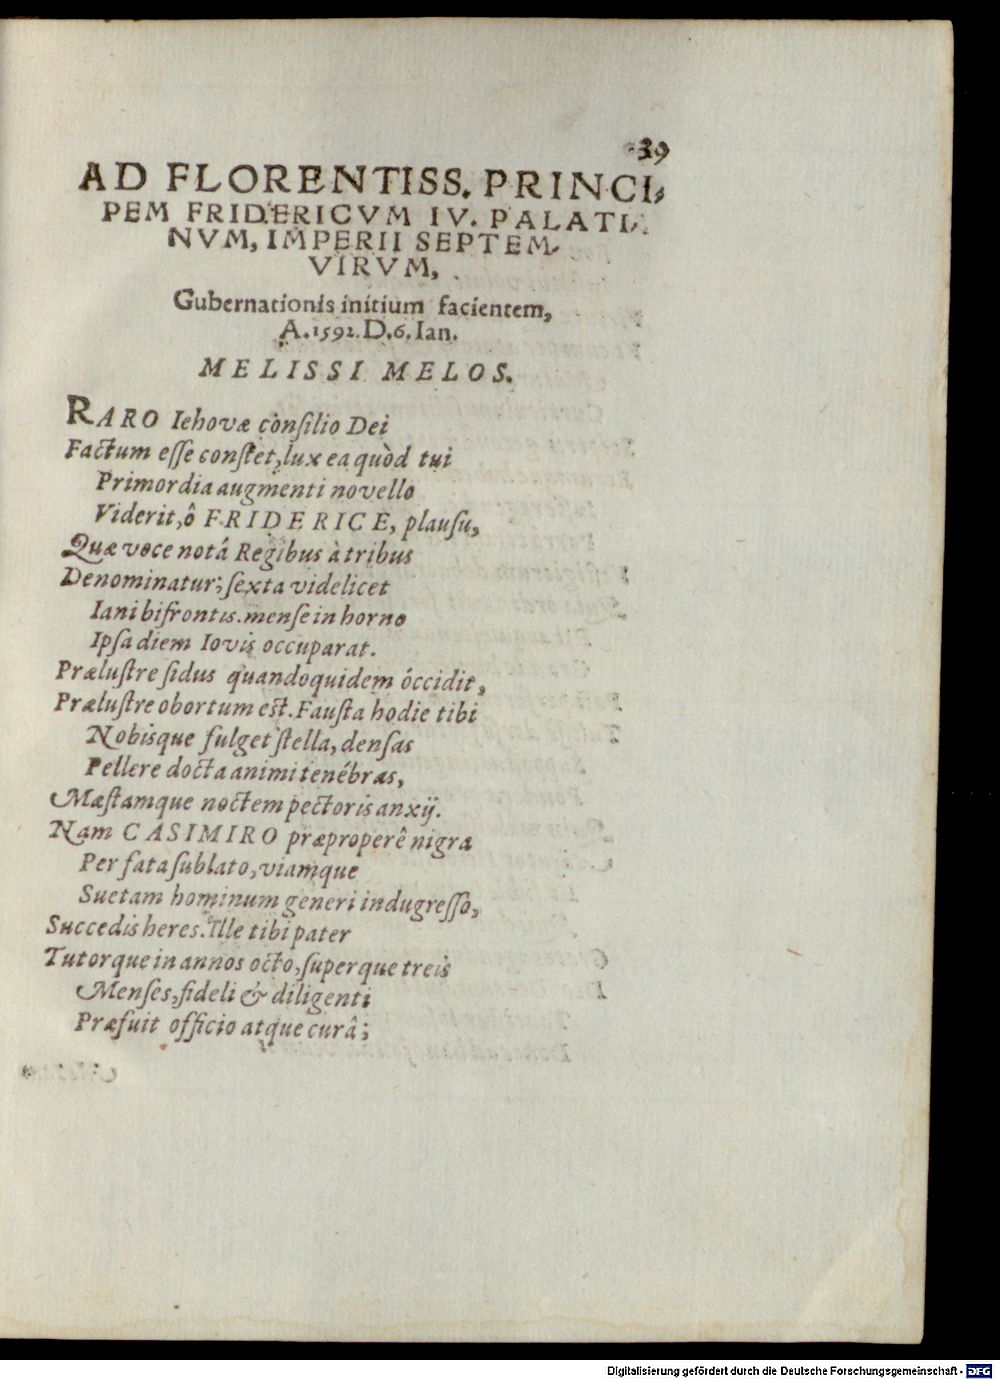 39
AD FLORENTISS. PRINCI-
PEM FRIDERICVM IV. PALATI-
NVM, IMPERII SEPTEM-
VIRVM,
Gubernationis initium facientem,
A. 1592. D. 6. Ian.
MELISSI MELOS.
RARO Iehovæ consilio Dei
Factum esse constet, lux ea quòd tui
Primordia augmenti novello
Viderit, ô FRIDERICE, plausu,
Quæ voce notâ Regibus à tribus
Denominatur; sexta videlicet
Iani bifrontis mense in horno
Ipsa diem Iovis occuparat.
Prælustre sidus quandoquidem óccidit,
Prælustre obortum est. Fausta hodie tibi
Nobisque fulget stella, densas
Pellere docta animi tenébras,
Mæstamque noctem pectoris anxij.
Nam CASIMIRO præproperê nigra
Per fata sublato, viamque
Suetam hominum generi indugresso,
Succedis heres. Ille tibi pater
Tutorque in annos octo, superque treis
Menses, fideli & diligenti
Præfuit officio atque curâ;
Digitalisierung gefördert durch die Deutsche Forschungsgemeinschaft - DFG